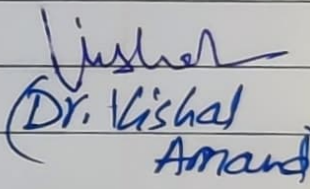 Vishal
(Dr. Vishal
Anand